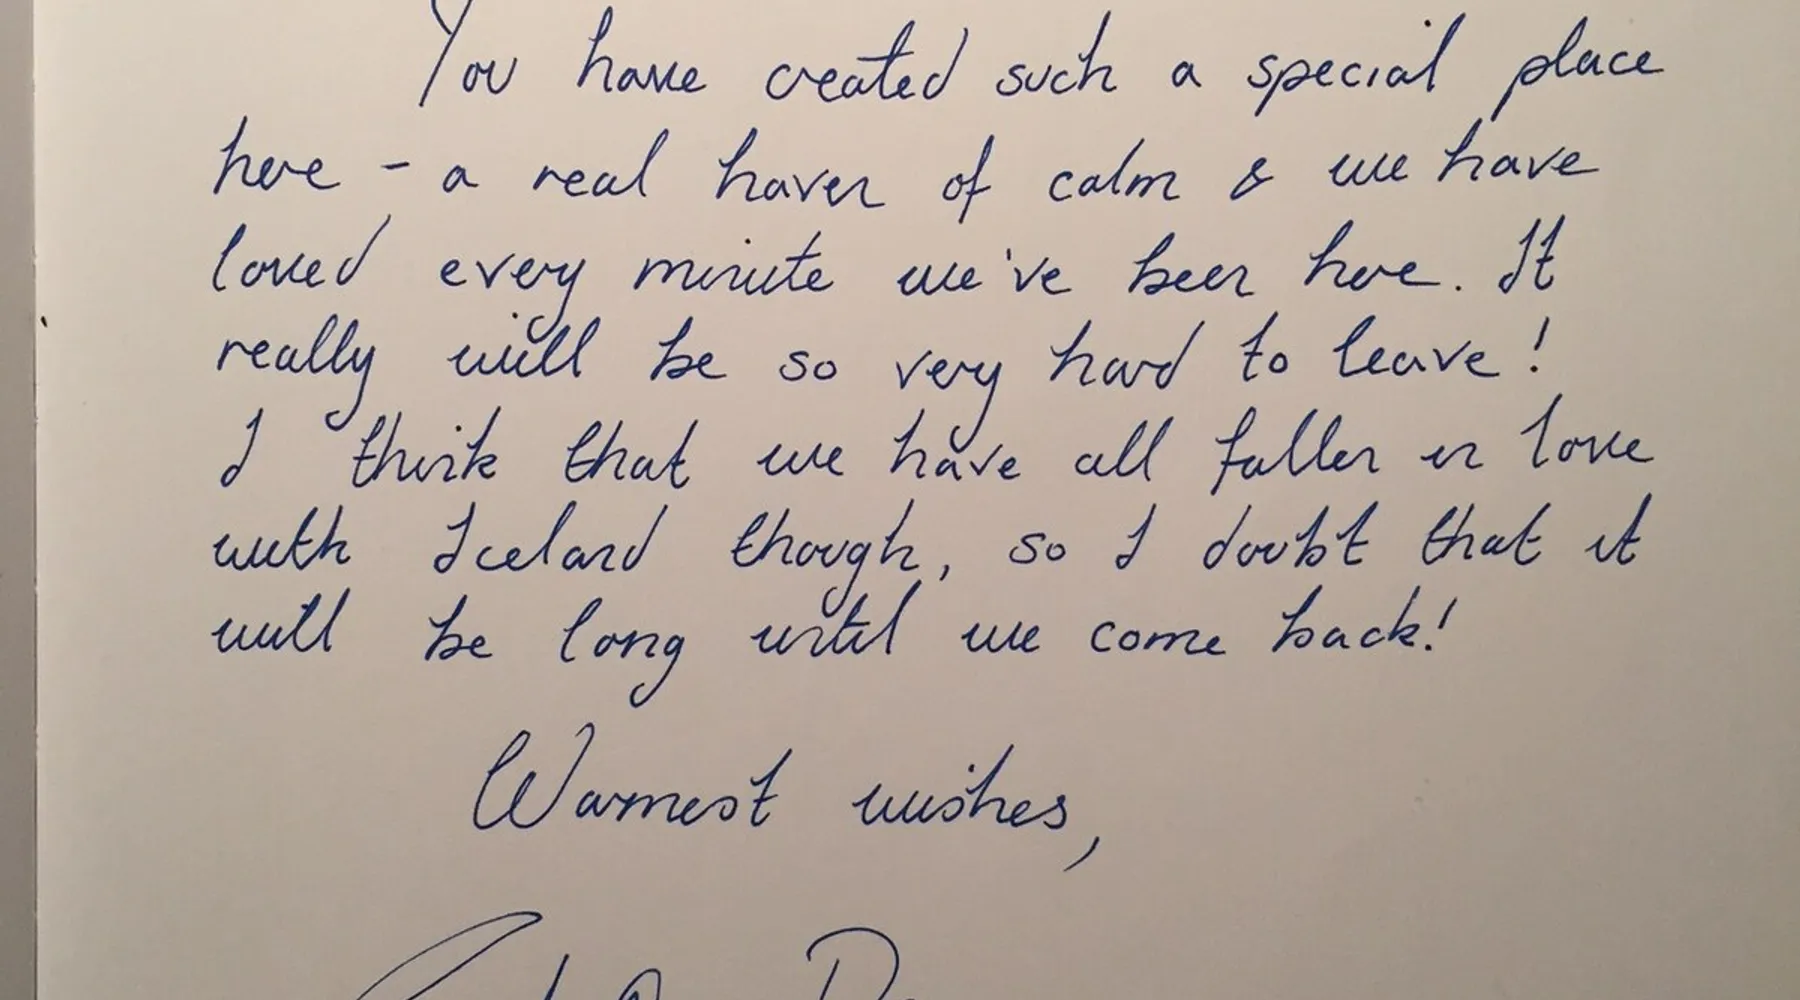 You have created such a special place
here - a real haven of calm & we have
loved every minute we've been here. It
really will be so very hard to leave!
I think that we have all fallen in love
with Iceland though, so I doubt that it
will be long until we come back!
Warmest wishes,